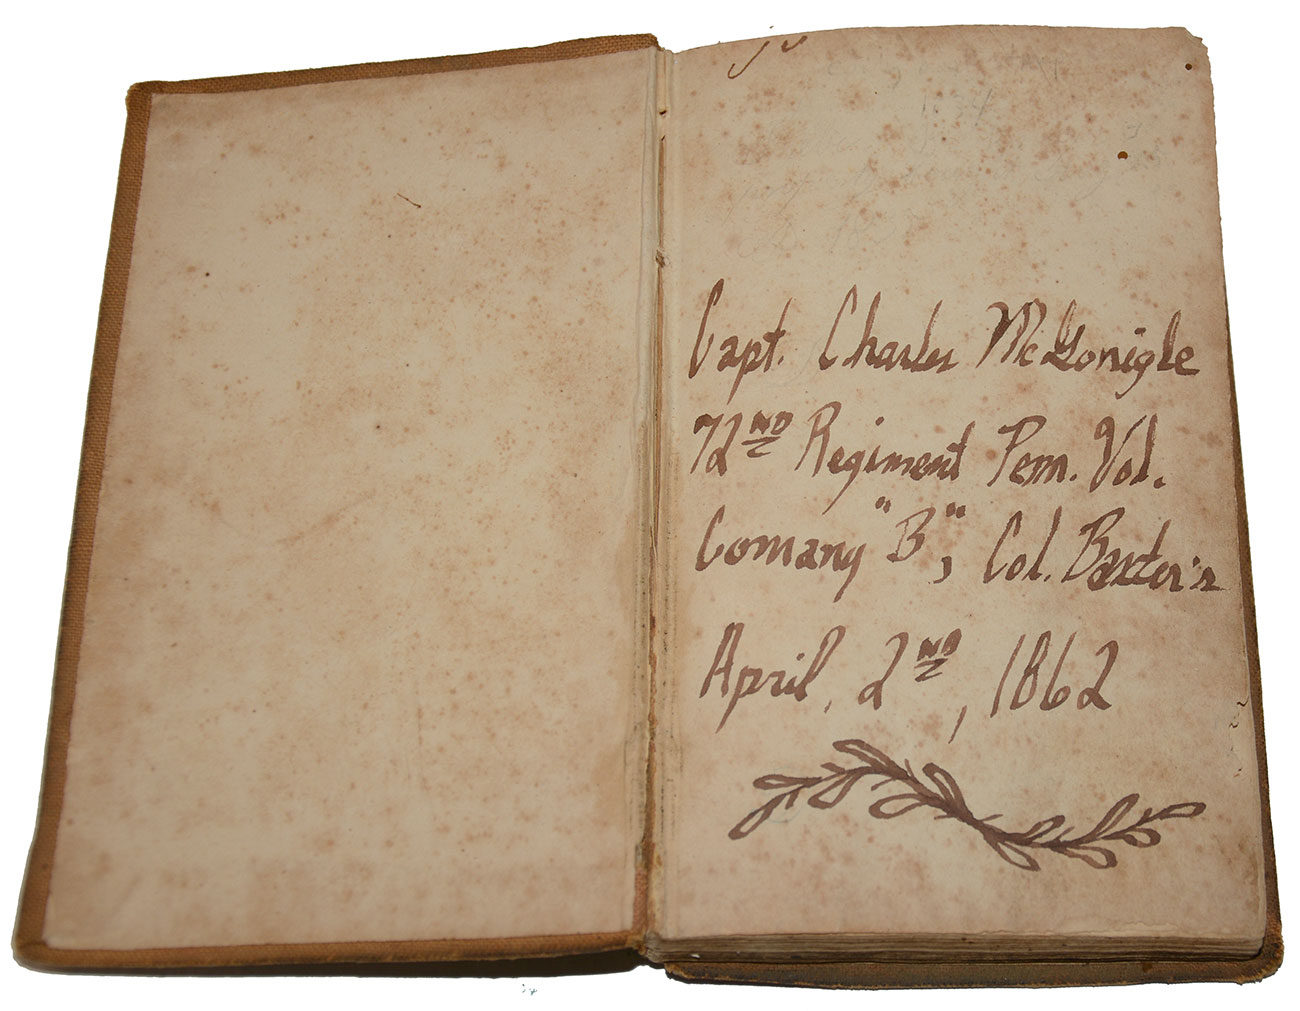 Capt. Charles McGonigle
72ND Regiment Penn. Vol.
Comany "B", Col. Baxter's
April, 2ND, 1862